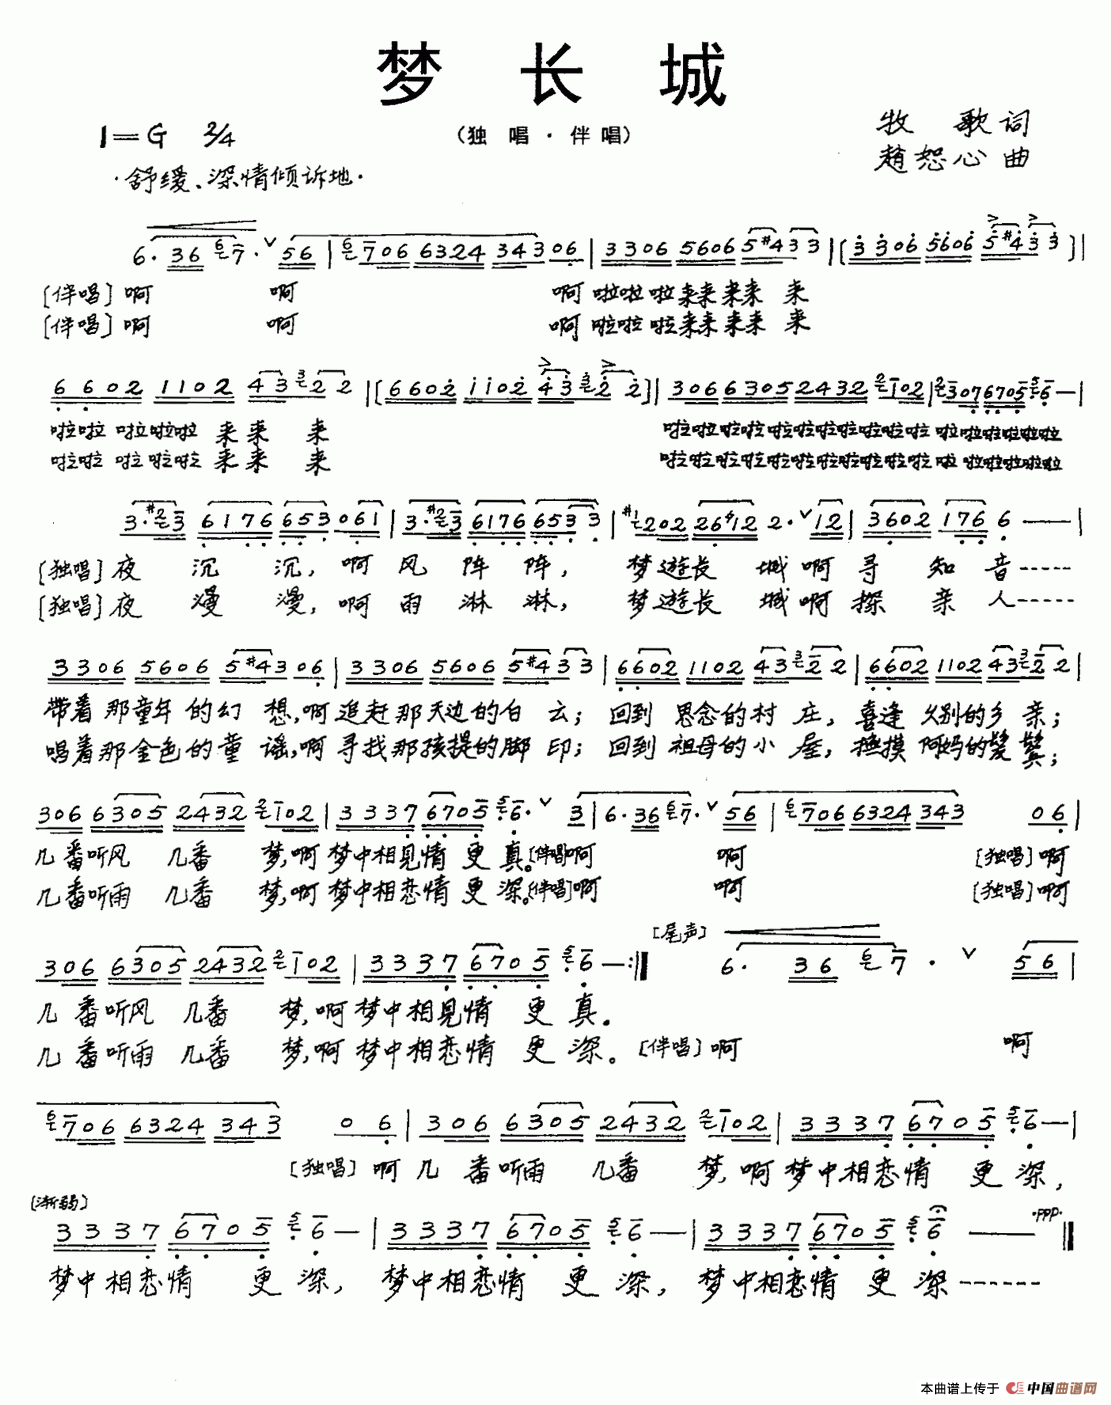 梦 长 城
1=G 2/4
(独 唱·伴唱)
牧 歌 词
趙恕心 曲
·舒缓、深情倾诉地·
6· 36 7· 56 | 706 6324 343 06 | 3306 5606 5#433 | [3306 5606 5#433] |
[伴唱]啊 啊 啊 啦啦 啦来来 来来 来
[伴唱]啊 啊 啊 啦啦 啦来来 来来 来
6602 1102 4322 | [6602 1102 4322] | 306 6305 2432 102 | 307 6705 6— |
啦啦 啦啦啦 来来 来 啦啦啦啦 啦啦啦啦啦啦 啦啦啦啦啦啦
啦啦 啦啦啦 来来 来 啦啦啦啦 啦啦啦啦啦啦 啦啦啦啦啦啦
[独唱]夜 沉 沉, 啊 风 阵 阵, 梦遊长 城啊寻 知 音-----
[独唱]夜 漫 漫, 啊 雨 淋 淋, 梦遊长 城啊探 亲 人-----
3306 5606 5#43 06 | 3306 5606 5#433 | 6602 1102 4322 | 6602 1102 4322 |
带着那童年的幻 想,啊 追赶那天边的白 云; 回到 思念的村 庄, 喜逢 久别的乡 亲;
唱着那金色的童 谣,啊 寻找那孩提的脚 印; 回到 祖母的小 屋, 撫摸 阿妈的髮 鬓;
306 6305 2432 102 | 3337 6705 6· 3 | 6·36 7· 56 | 706 6324 343 06 |
几番听风 几番 梦,啊 梦中相见情 更 真。[伴唱]啊 啊 [独唱]啊
几番听雨 几番 梦,啊 梦中相恋情 更 深。[伴唱]啊 啊 [独唱]啊
[尾声]
306 6305 2432 102 | 3337 6705 6— :‖ 6· 36 7· 56 |
几番听风 几番 梦,啊 梦中相见情 更 真。
几番听雨 几番 梦,啊 梦中相恋情 更 深。[伴唱]啊 啊
706 6324 343 06 | 306 6305 2432 102 | 3337 6705 6— |
[独唱]啊 几 番听雨 几番 梦,啊 梦中相恋情 更 深,
[渐弱]
3337 6705 6— | 3337 6705 6— | 3337 6705 6 — ·ppp· ‖
梦中相恋情 更 深, 梦中相恋情 更 深, 梦中相恋情 更 深------
本曲谱上传于 中国曲谱网